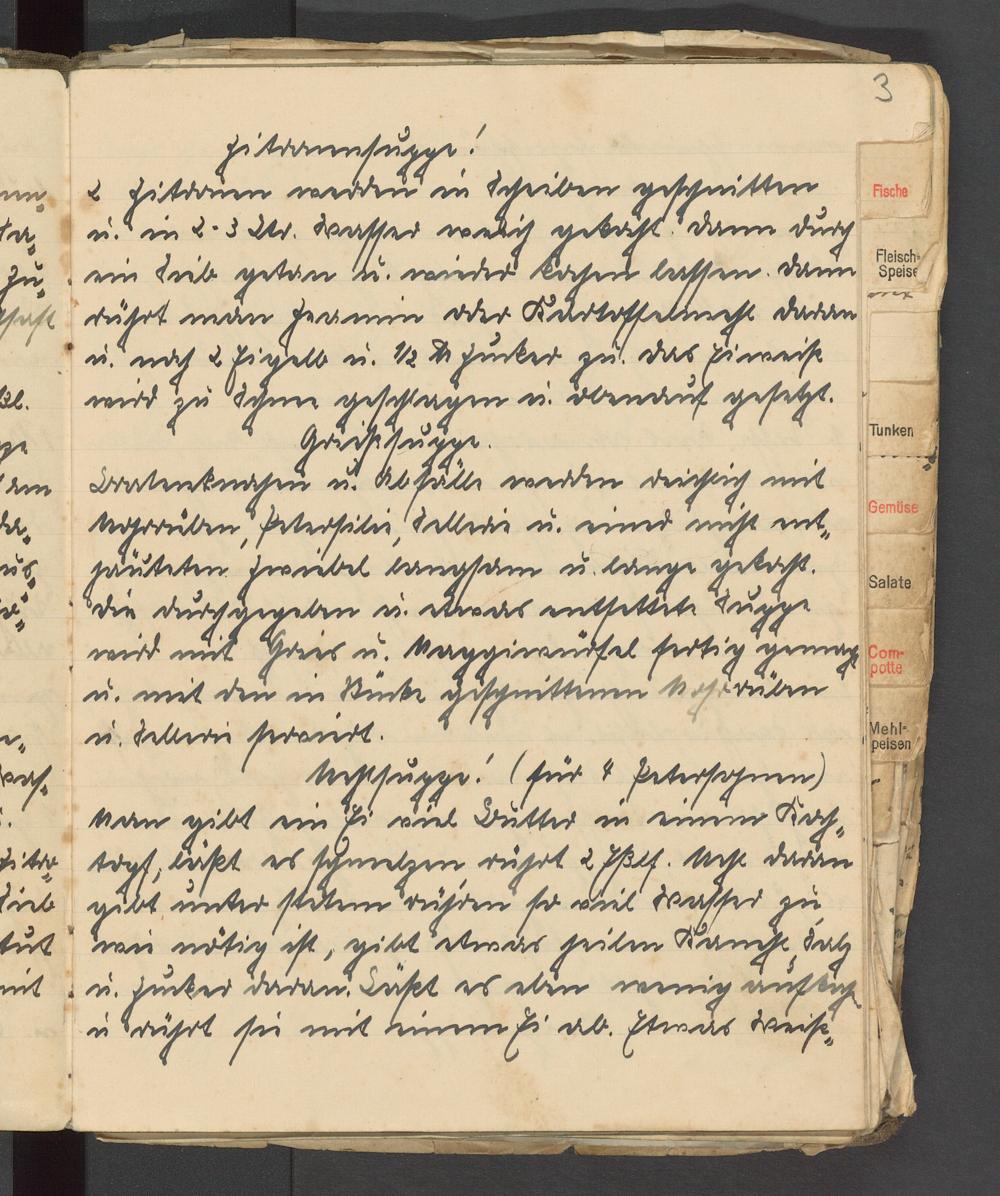 3
Zitronensuppe!
2 Zitronen werden in Scheiben geschnitten
u. in 2-3 Ltr. Wasser weich gekocht. Dann durch
ein Sieb getan u. wieder kochen lassen. Dann
rührt man Gramin oder Kartoffelmehl daran
u. noch 2 Eigelb u. 1/2 ℔ Zucker zu. Das Eiweiß
wird zu Schnee geschlagen u. obenauf gesetzt.
Grießsuppe.
Bratenknochen u. Abfälle werden reichlich mit
Mohrrüben, Petersilie, Sellerie u. einer nicht ent„
häuteten Zwiebel langsam u. lange gekocht.
Die durchgegeben u. etwas entfettete Suppe
wird mit Gries u. Maggiwürfel fertig gemacht
u. mit den in Stücke geschnittenen Mohrrüben
u. Sellerie serviert.
Mehlsuppe! (für 4 Petersohnen)
Man gibt ein Ei viel Butter in einem Koch„
topf, läßt es schmelzen, rührt 2 Eßlf. Mehl daran
gibt unter stetem rühren so viel Wasser zu,
wie nötig ist, gibt etwas heilen Kanehl, Salz
u. Zucker daran. Läßt es eben wenig aufkoch
u rührt sie mit einem Ei ab. Etwas Weiß„
Fische
Fleisch-
Speise
Tunken
Gemüse
Salate
Com-
potte
Mehl-
peisen